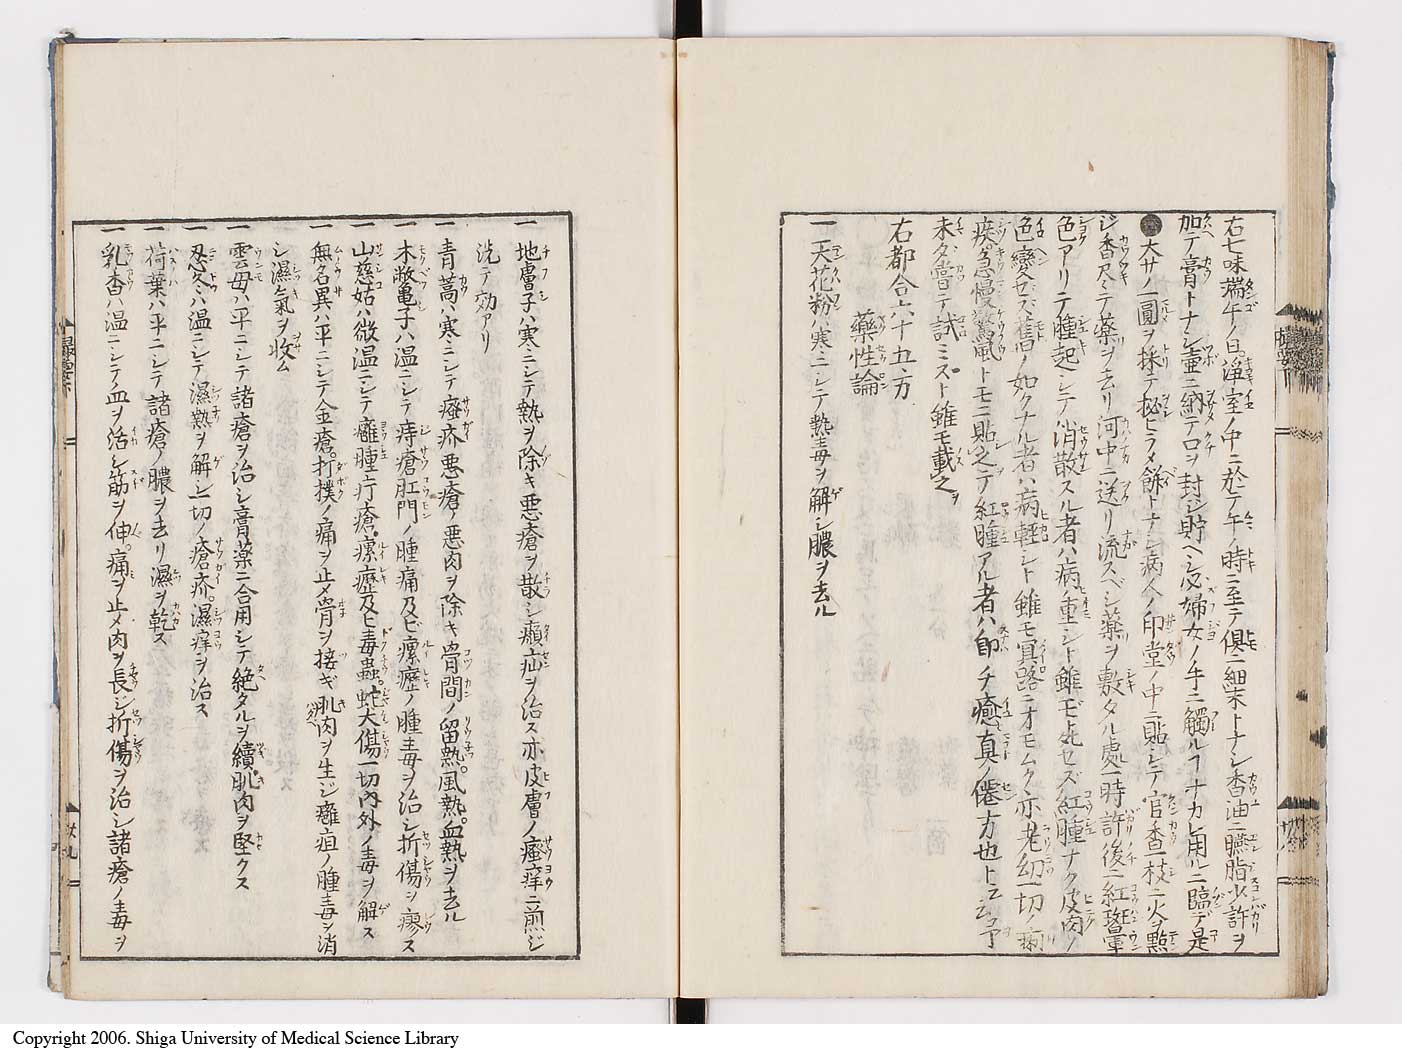 右七味端午ノ日淨室ノ中ニ於テ午ノ時ニ至テ俱ニ細末トナシ香油ニ臙脂少許ヲ
加テ膏トナシ壷ニ納テ口ヲ封ジ貯ヘシ必婦女ノ手ニ觸ルヿナカレ用ルニ臨デ是
●大サノ圓ヲ採テ秘ヒラメ餅トナシ病人ノ印堂ノ中ニ貼シテ官香一枝ニ火ヲ點
ジ香尽ミテ藥ヲ去リ河中ニ送リ流スベシ藥ヲ敷タル處一時許後ニ紅暈
色アリテ腫起シテ消散スル者ハ病重シト雖モ死セズ紅腫ナク皮肉ノ
色變セズ舊ノ如クナル者ハ病輕シト雖モ冥路ニオモムク亦老幼一切ノ痢
疾急慢驚風トモニ貼之テ紅腫アル者ハ即チ癒真ノ僊方也ト云予
未タ嘗テ試ミスト雖モ載之ヲ
右都合六十五方
藥性論
一天花粉ハ寒ニシテ熱毒ヲ解シ膿ヲ去ル
一地膚子ハ寒ニシテ熱ヲ除キ悪瘡ヲ散シ癩疝ヲ治ス亦皮膚ノ瘙痒ニ煎ジ
洗テ効アリ
一青蒿ハ寒ニシテ瘙疥悪瘡ノ悪肉ヲ除キ骨間ノ留熱風熱血熱ヲ去ル
一木敝亀子ハ温ニシテ痔瘡肛門ノ腫痛及ビ瘰癧ノ腫毒ヲ治シ折傷ヲ療ス
一山慈姑ハ微温ニシテ癰腫疔瘡瘰癧及ヒ毒蟲蛇犬傷一切内外ノ毒ヲ解ス
一無名異ハ平ニシテ金瘡打撲ノ痛ヲ止メ骨ヲ接ギ肌肉ヲ生ジ癰疽ノ腫毒ヲ消
シ濕氣ヲ收ム
一雲母ハ平ニシテ諸瘡ヲ治シ膏藥ニ合用シテ絶タルヲ續肌肉ヲ堅クス
一忍冬ハ温ニシテ濕熱ヲ解シ一切ノ瘡疥濕痒ヲ治ス
一荷葉ハ平ニシテ諸瘡ノ膿ヲ去リ濕ヲ乾ス
一乳香ハ温ニシテ血ヲ活シ筋ヲ伸痛ヲ止メ肉ヲ長ジ折傷ヲ治シ諸瘡ノ毒ヲ
Copyright 2006. Shiga University of Medical Science Library